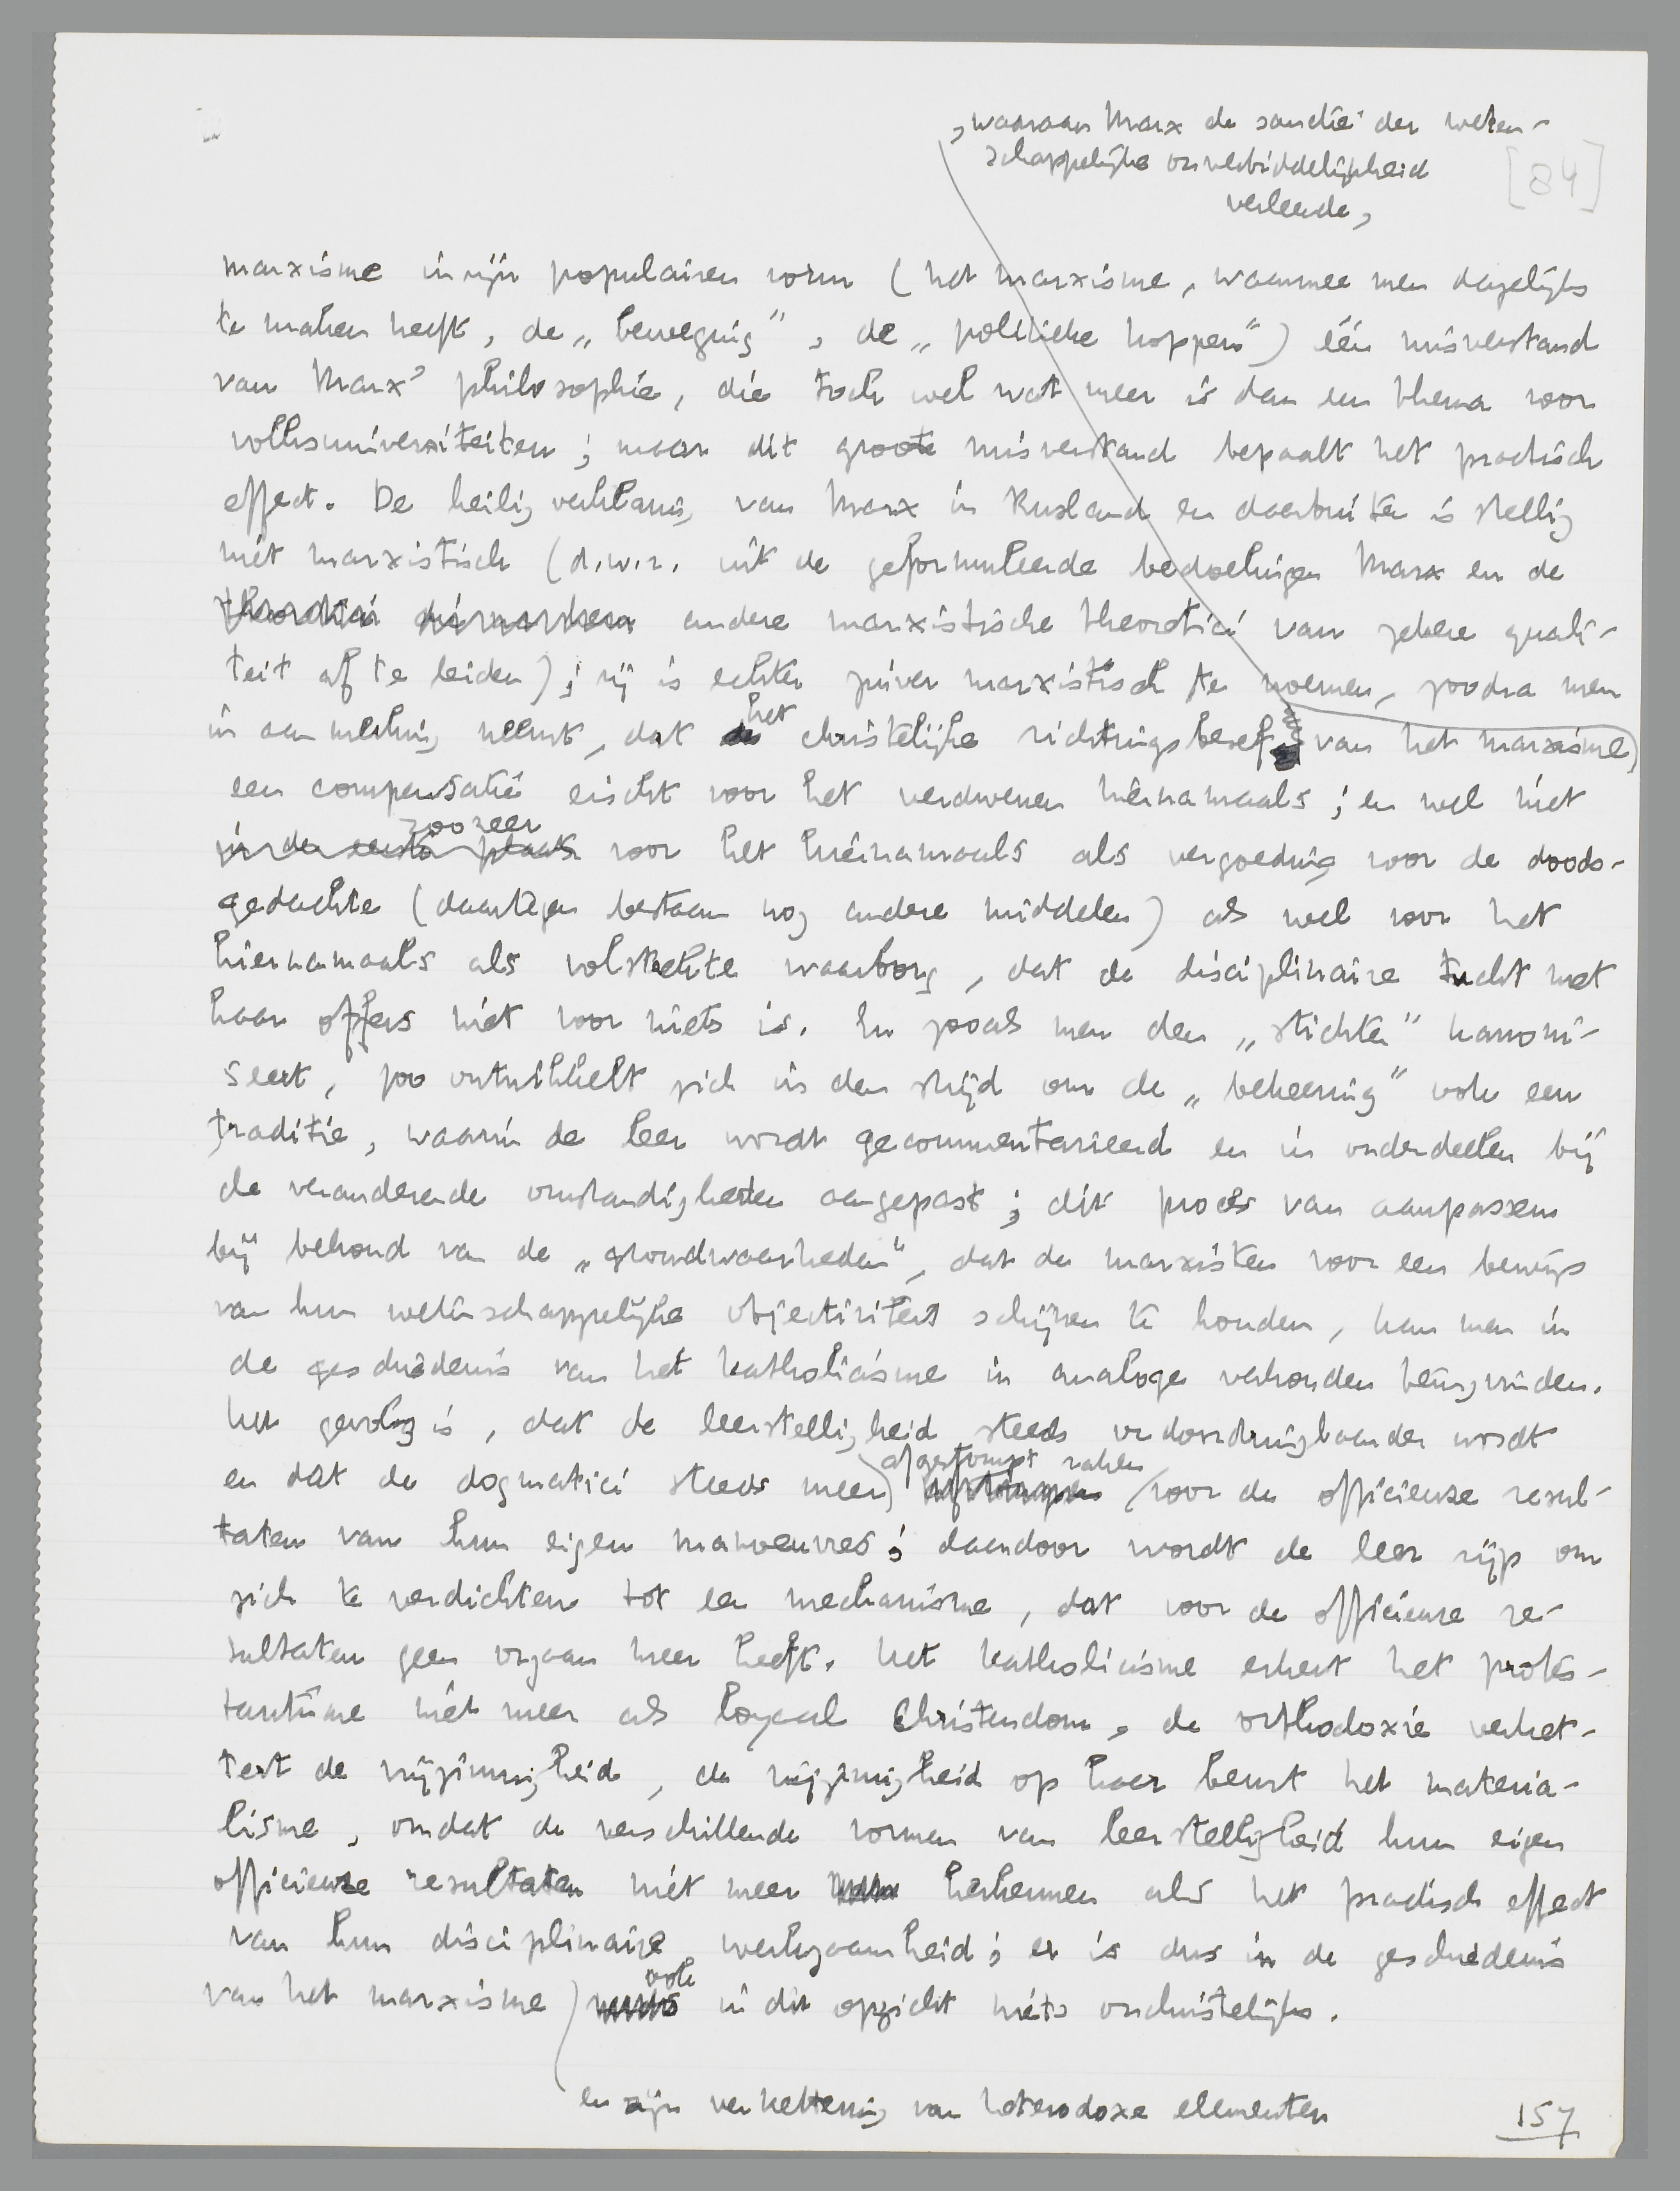 , waaraan Marx de sanctie der weten-
schappelijke onverbiddelijkheid
verleende,
[84]
marxisme in zijn populairen vorm (het marxisme, waarmee men dagelijks
te maken heeft, de „beweging”, de „politieke koppen”) één misverstand
van Marx' philosophie, die toch wel wat meer is dan een thema voor
volksuniversiteiten; maar dit groote misverstand bepaalt het practisch
effect. De heiligverklaring van Marx in Rusland en daarbuiten is stellig
niet marxistisch (d.w.z. uit de geformuleerde bedoelingen Marx en de
andere marxistische theoretici van zekere quali-
teit af te leiden); zij is echter zuiver marxistisch te noemen, zoodra men
in aanmerking neemt, dat het christelijke richtingsbesef van het marxisme
een compensatie eischt voor het verdwenen hiernamaals; en wel niet
in de eerste plaats zoozeer voor het hiernamaals als vergoeding voor de doods-
gedachte (daartegen bestaan nog andere middelen) als wel voor het
hiernamaals als volstrekte waarborg, dat de disciplinaire tucht met
haar offers niet voor niets is. En zooals men den „stichter” kanoni-
seert, zoo ontwikkelt zich in den strijd om de „beheering” ook een
traditie, waarin de leer wordt gecommentarieerd en in onderdeelen bij
de veranderende omstandigheden aangepast; dit proces van aanpassen
bij behoud van de „grondwaarheden”, dat de marxisten voor een bewijs
van hun wetenschappelijke objectiviteit schijnen te houden, kan men in
de geschiedenis van het katholicisme in analoge verhouden terugvinden.
Het gevolg is, dat de leerstelligheid steeds ondoordringbaarder wordt
en dat de dogmatici steeds meer afgestompt raken voor de officieuze resul-
taten van hun eigen manoeuvres; daardoor wordt de leer rijp om
zich te verdichten tot een mechanisme, dat voor de officieuze re-
sultaten geen orgaan meer heeft. Het katholicisme erkent het protes-
tantisme niet meer als loyaal Christendom, de orthodoxie verket-
tert de vrijzinnigheid, de vrijzinnigheid op haar beurt het materia-
lisme, omdat de verschillende vormen van leerstelligheid hun eigen
officieuze resultaten niet meer herkennen als het practisch effect
van hun disciplinaire werkzaamheid; er is dus in de geschiedenis
van het marxisme ook in dit opzicht niets onchristelijks.
en zijn verkettering van heterodoxe elementen
157